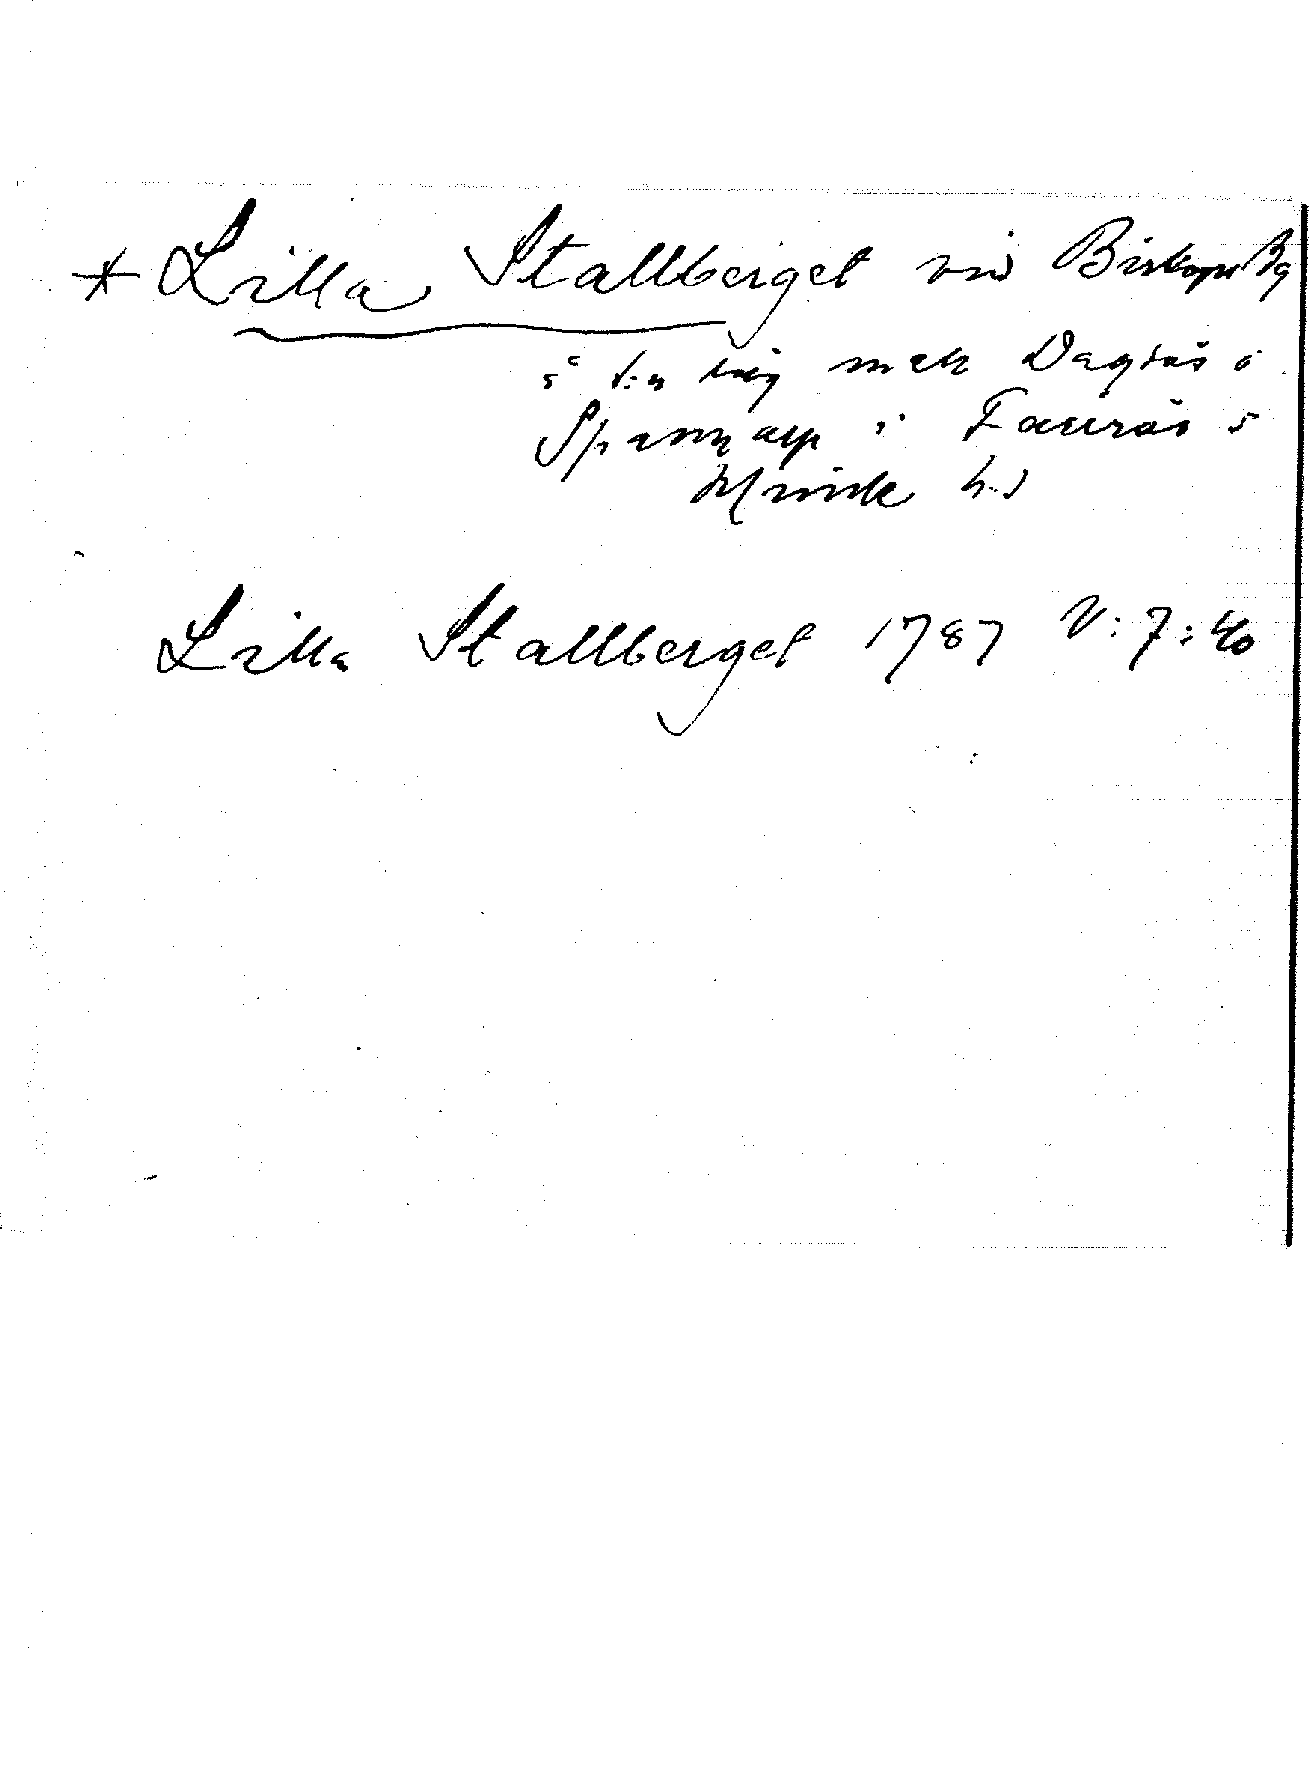 * Lilla Stallberget vid Biskops
med Dagsås o
Spannarp i Faurås o
Himle hd
Lilla Stallberget 1787 V:7:40